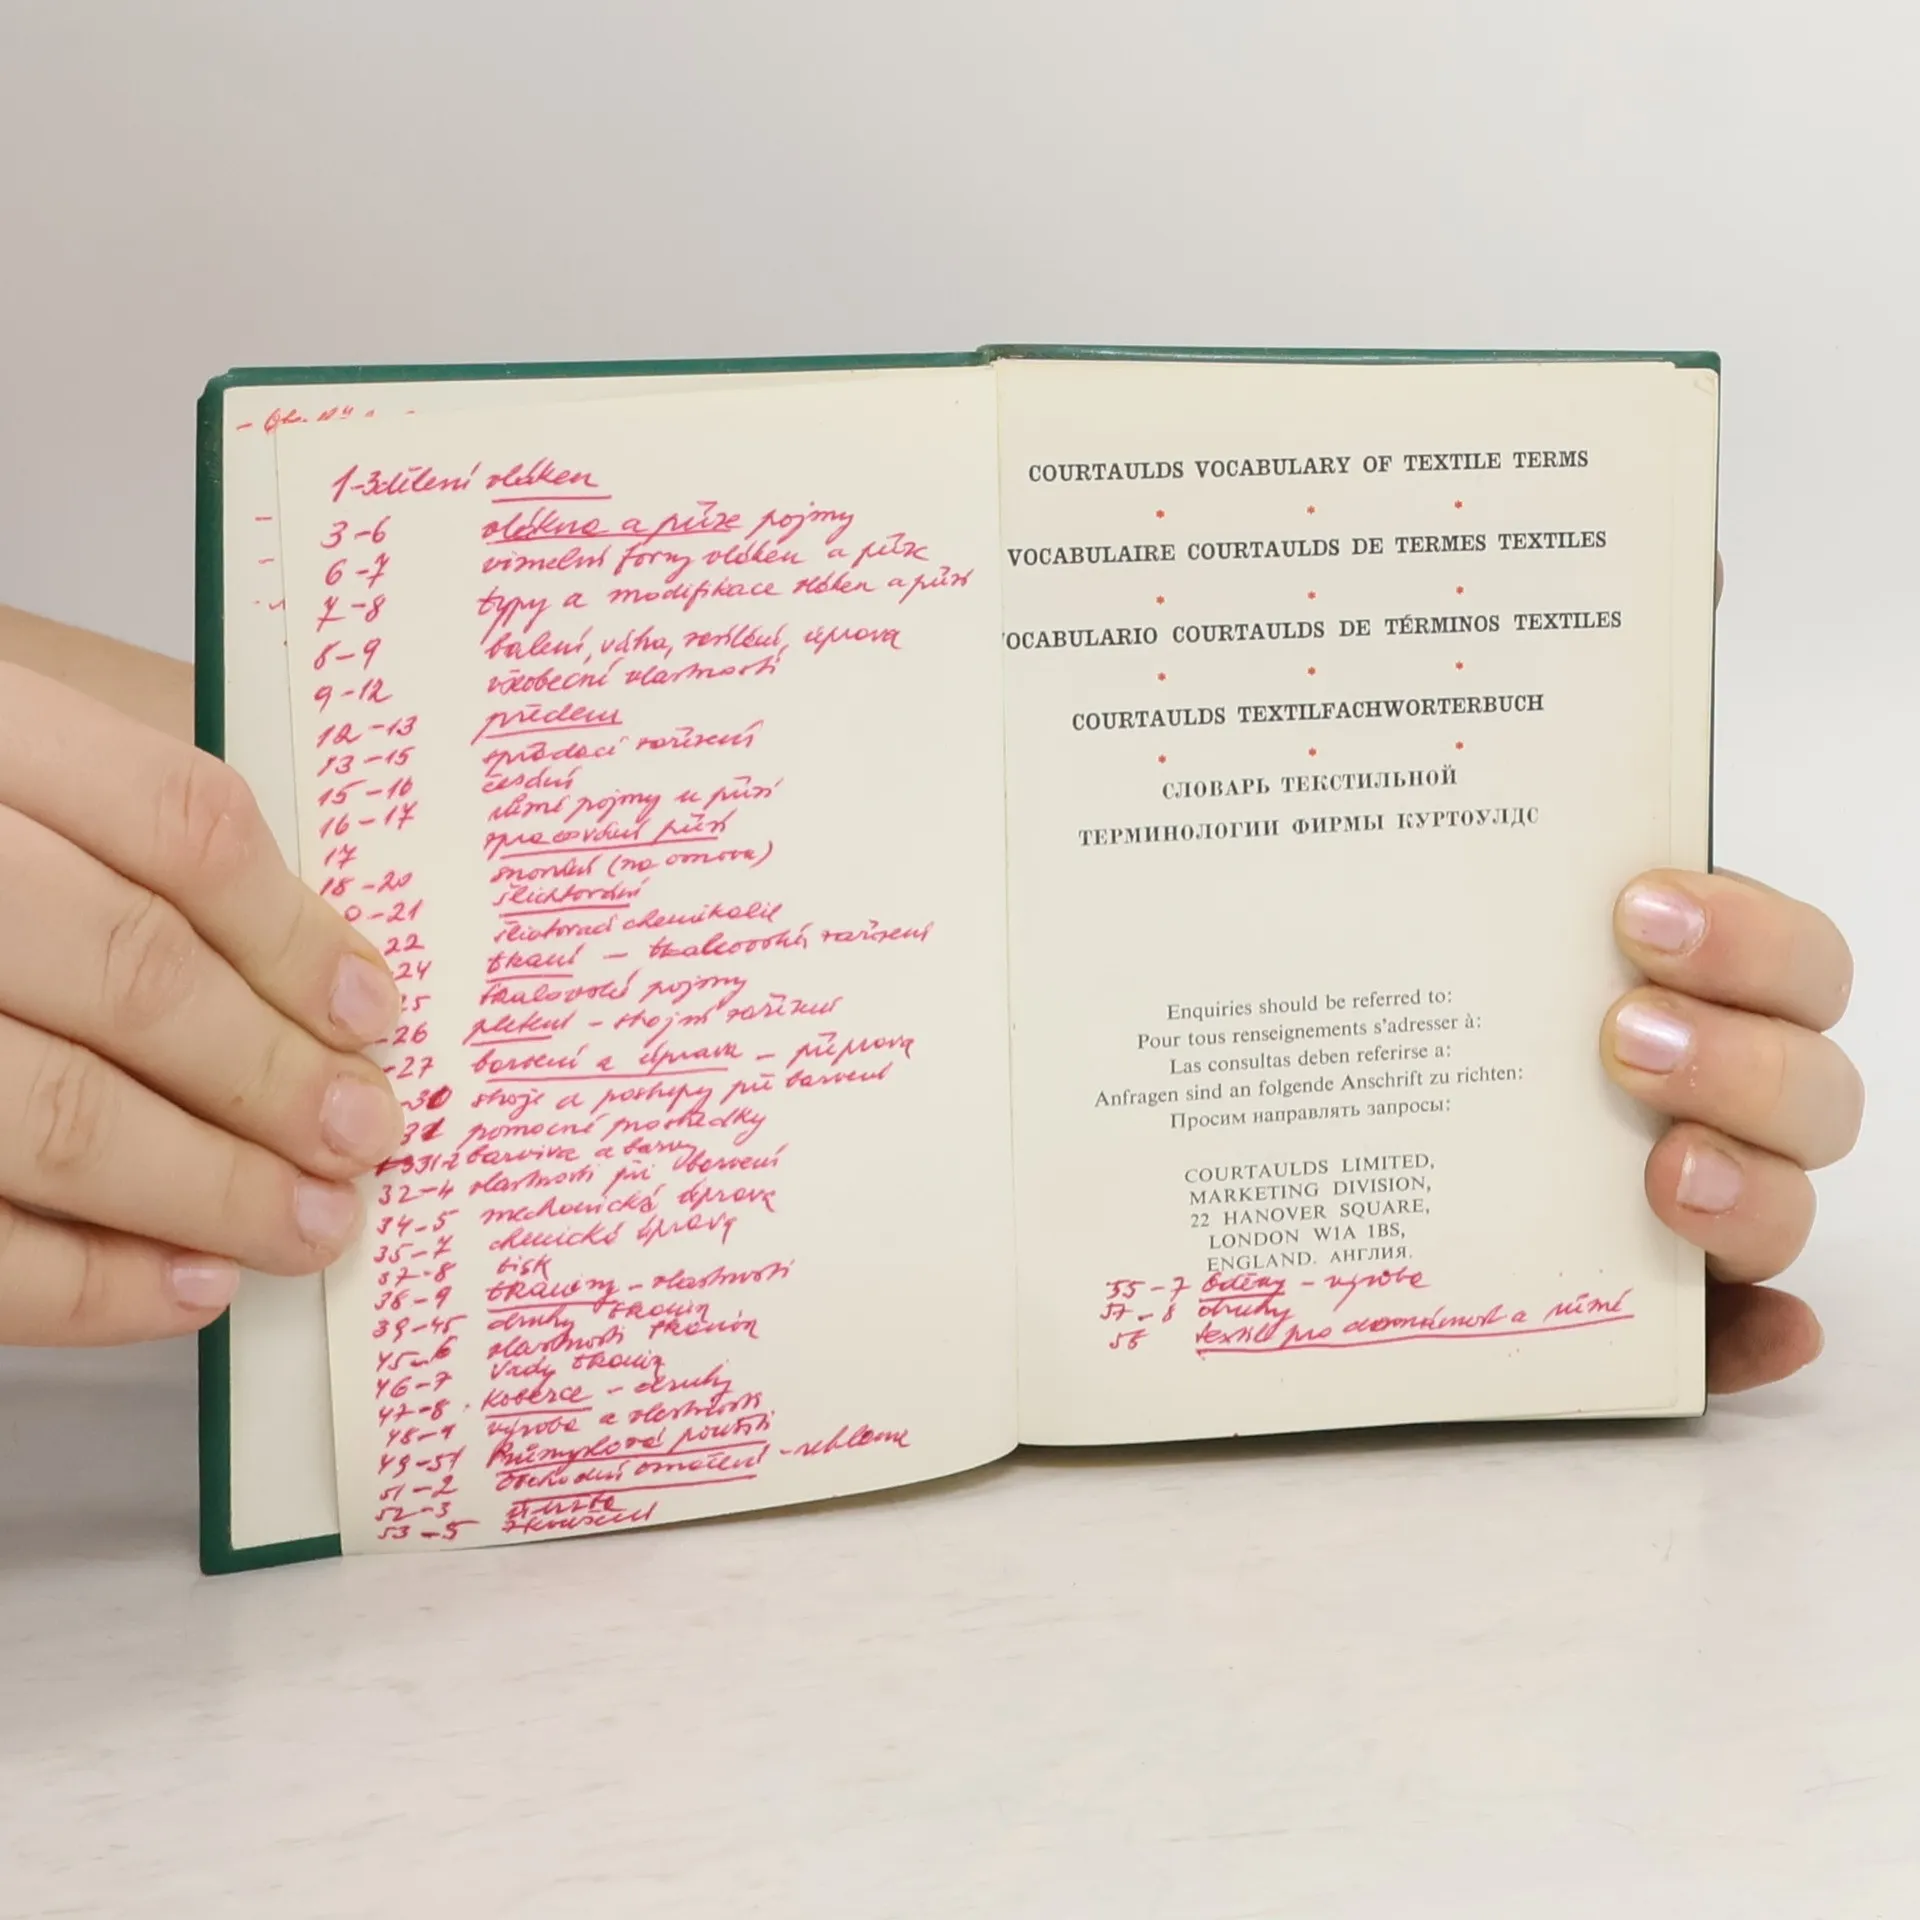 1-3 dělení vláken
3-6 vlákna a příze pojmy
6-7 vizuelní formy vláken a příze
7-8 typy a modifikace vláken a přízí
8-9 balení, váha, zesílení, úprava
9-12 všeobecné vlastnosti
12-13 předení
13-15 spřádací zařízení
15-16 česání
16-17 různé pojmy u přízí
17 zpracování přízí
18-20 snování (na osnova)
0-21 šlichtování
22 chemikálie
-24 tkaní - tkalcovská zařízení
25 tkalcovské pojmy
-26 pletení - strojní zařízení
-27 barvení a úprava - příprava
-30 stroje a postupy při barvení
31 pomocné prostředky
31-2 barviva a barvy
32-4 vlastnosti při barvení
34-5 mechanická úprava
35-7 chemická úprava
37-8 tisk
38-9 tkaniny - vlastnosti
39-45 druhy tkanin
45-6 vlastnosti tkanin
46-7 vady tkanin
47-8 koberce - druhy
48-9 výroba a vlastnosti
49-51 Průmyslová použití
51-2 obchodní označení - reklama
52-3
53-5 zkoušení
COURTAULDS VOCABULARY OF TEXTILE TERMS
VOCABULAIRE COURTAULDS DE TERMES TEXTILES
VOCABULARIO COURTAULDS DE TÉRMINOS TEXTILES
COURTAULDS TEXTILFACHWORTERBUCH
СЛОВАРЬ ТЕКСТИЛЬНОЙ
ТЕРМИНОЛОГИИ ФИРМЫ КУРТОУЛДС
Enquiries should be referred to:
Pour tous renseignements s'adresser à:
Las consultas deben referirse a:
Anfragen sind an folgende Anschrift zu richten:
Просим направлять запросы:
COURTAULDS LIMITED,
MARKETING DIVISION,
22 HANOVER SQUARE,
LONDON W1A 1BS,
ENGLAND. АНГЛИЯ.
55-7 oděvy - výroba
57-8 druhy
58 textil pro domácnost a různé